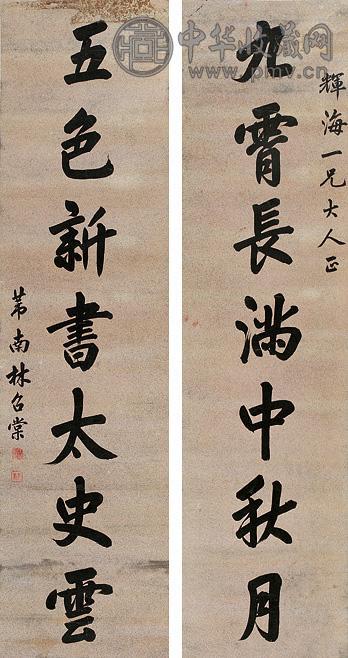 輝海一兄大人正
九霄長滿中秋月
五色新書太史雲
芾南林召棠
中华收藏网
www.pmv.cn